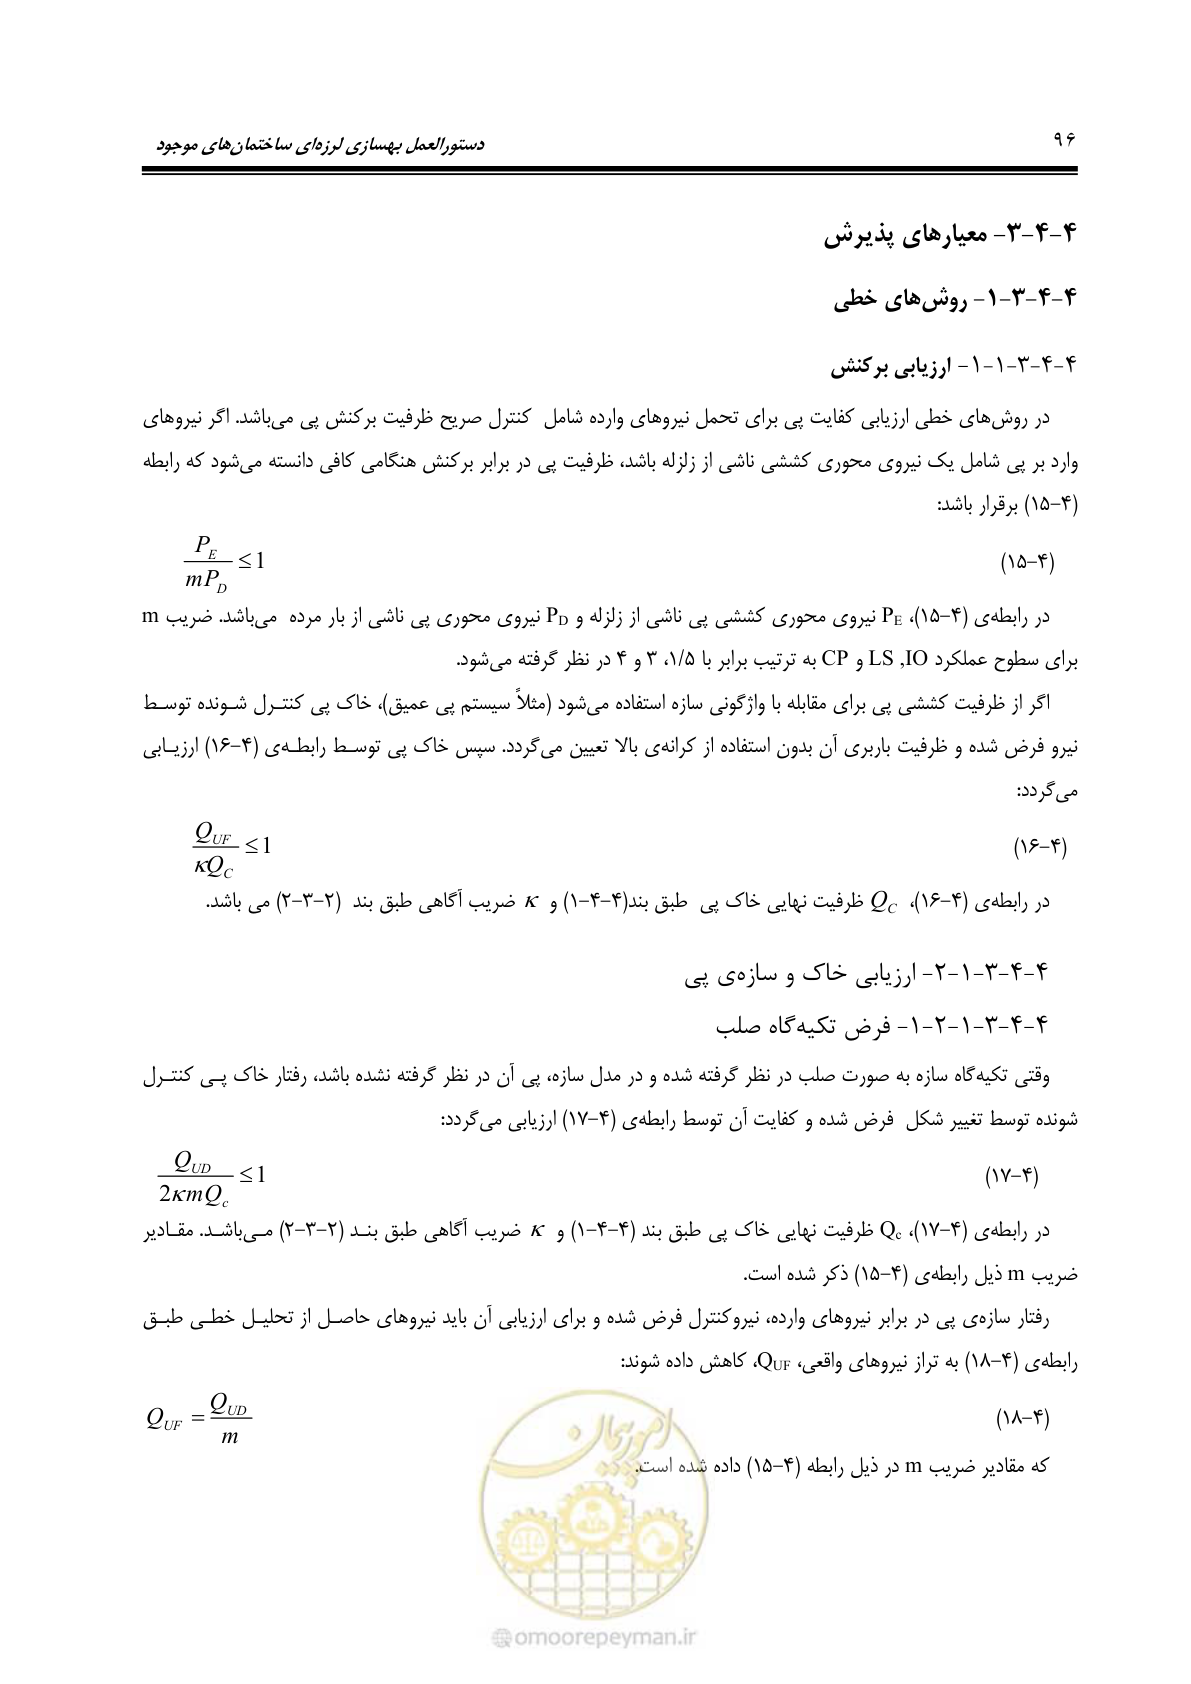 ۹۶
دستورالعمل بهسازی لرزه‌ای ساختمان‌های موجود
۴-۴-۳- معیارهای پذیرش
۴-۴-۳-۱- روش‌های خطی
۴-۴-۳-۱-۱- ارزیابی برکنش
در روش‌های خطی ارزیابی کفایت پی برای تحمل نیروهای وارده شامل کنترل صریح ظرفیت برکنش پی می‌باشد. اگر نیروهای
وارد بر پی شامل یک نیروی محوری کششی ناشی از زلزله باشد، ظرفیت پی در برابر برکنش هنگامی کافی دانسته می‌شود که رابطه
(۴-۱۵) برقرار باشد:
(۴-۱۵) P_E / mP_D ≤ 1
در رابطه‌ی (۴-۱۵)، P_E نیروی محوری کششی پی ناشی از زلزله و P_D نیروی محوری پی ناشی از بار مرده می‌باشد. ضریب m
برای سطوح عملکرد LS ,IO و CP به ترتیب برابر با ۱/۵، ۳ و ۴ در نظر گرفته می‌شود.
اگر از ظرفیت کششی پی برای مقابله با واژگونی سازه استفاده می‌شود (مثلاً سیستم پی عمیق)، خاک پی کنترل شونده توسط
نیرو فرض شده و ظرفیت باربری آن بدون استفاده از کرانه‌ی بالا تعیین می‌گردد. سپس خاک پی توسط رابطه‌ی (۴-۱۶) ارزیابی
می‌گردد:
(۴-۱۶) Q_UF / κQ_C ≤ 1
در رابطه‌ی (۴-۱۶)، Q_C ظرفیت نهایی خاک پی طبق بند(۴-۴-۱) و κ ضریب آگاهی طبق بند (۲-۳-۲) می باشد.
۴-۴-۳-۱-۲- ارزیابی خاک و سازه‌ی پی
۴-۴-۳-۱-۲-۱- فرض تکیه‌گاه صلب
وقتی تکیه‌گاه سازه به صورت صلب در نظر گرفته شده و در مدل سازه، پی آن در نظر گرفته نشده باشد، رفتار خاک پی کنترل
شونده توسط تغییر شکل فرض شده و کفایت آن توسط رابطه‌ی (۴-۱۷) ارزیابی می‌گردد:
(۴-۱۷) Q_UD / 2κmQ_c ≤ 1
در رابطه‌ی (۴-۱۷)، Q_c ظرفیت نهایی خاک پی طبق بند (۴-۴-۱) و κ ضریب آگاهی طبق بند (۲-۳-۲) می‌باشد. مقادیر
ضریب m ذیل رابطه‌ی (۴-۱۵) ذکر شده است.
رفتار سازه‌ی پی در برابر نیروهای وارده، نیروکنترل فرض شده و برای ارزیابی آن باید نیروهای حاصل از تحلیل خطی طبق
رابطه‌ی (۴-۱۸) به تراز نیروهای واقعی، Q_UF، کاهش داده شوند:
(۴-۱۸) Q_UF = Q_UD / m
که مقادیر ضریب m در ذیل رابطه (۴-۱۵) داده شده است.
امور پیمان
omoorepeyman.ir